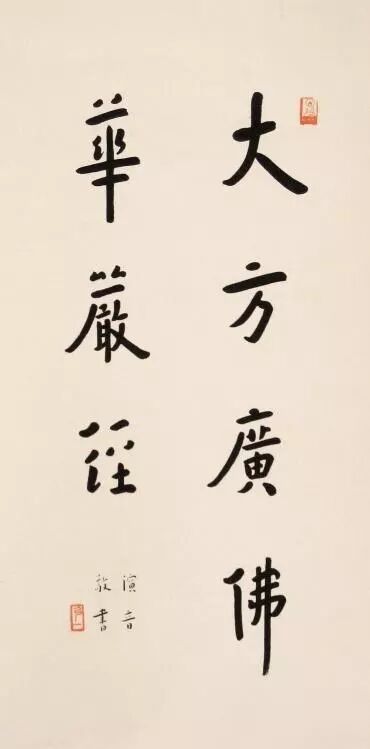 大方廣佛
華嚴経
演音
敬書